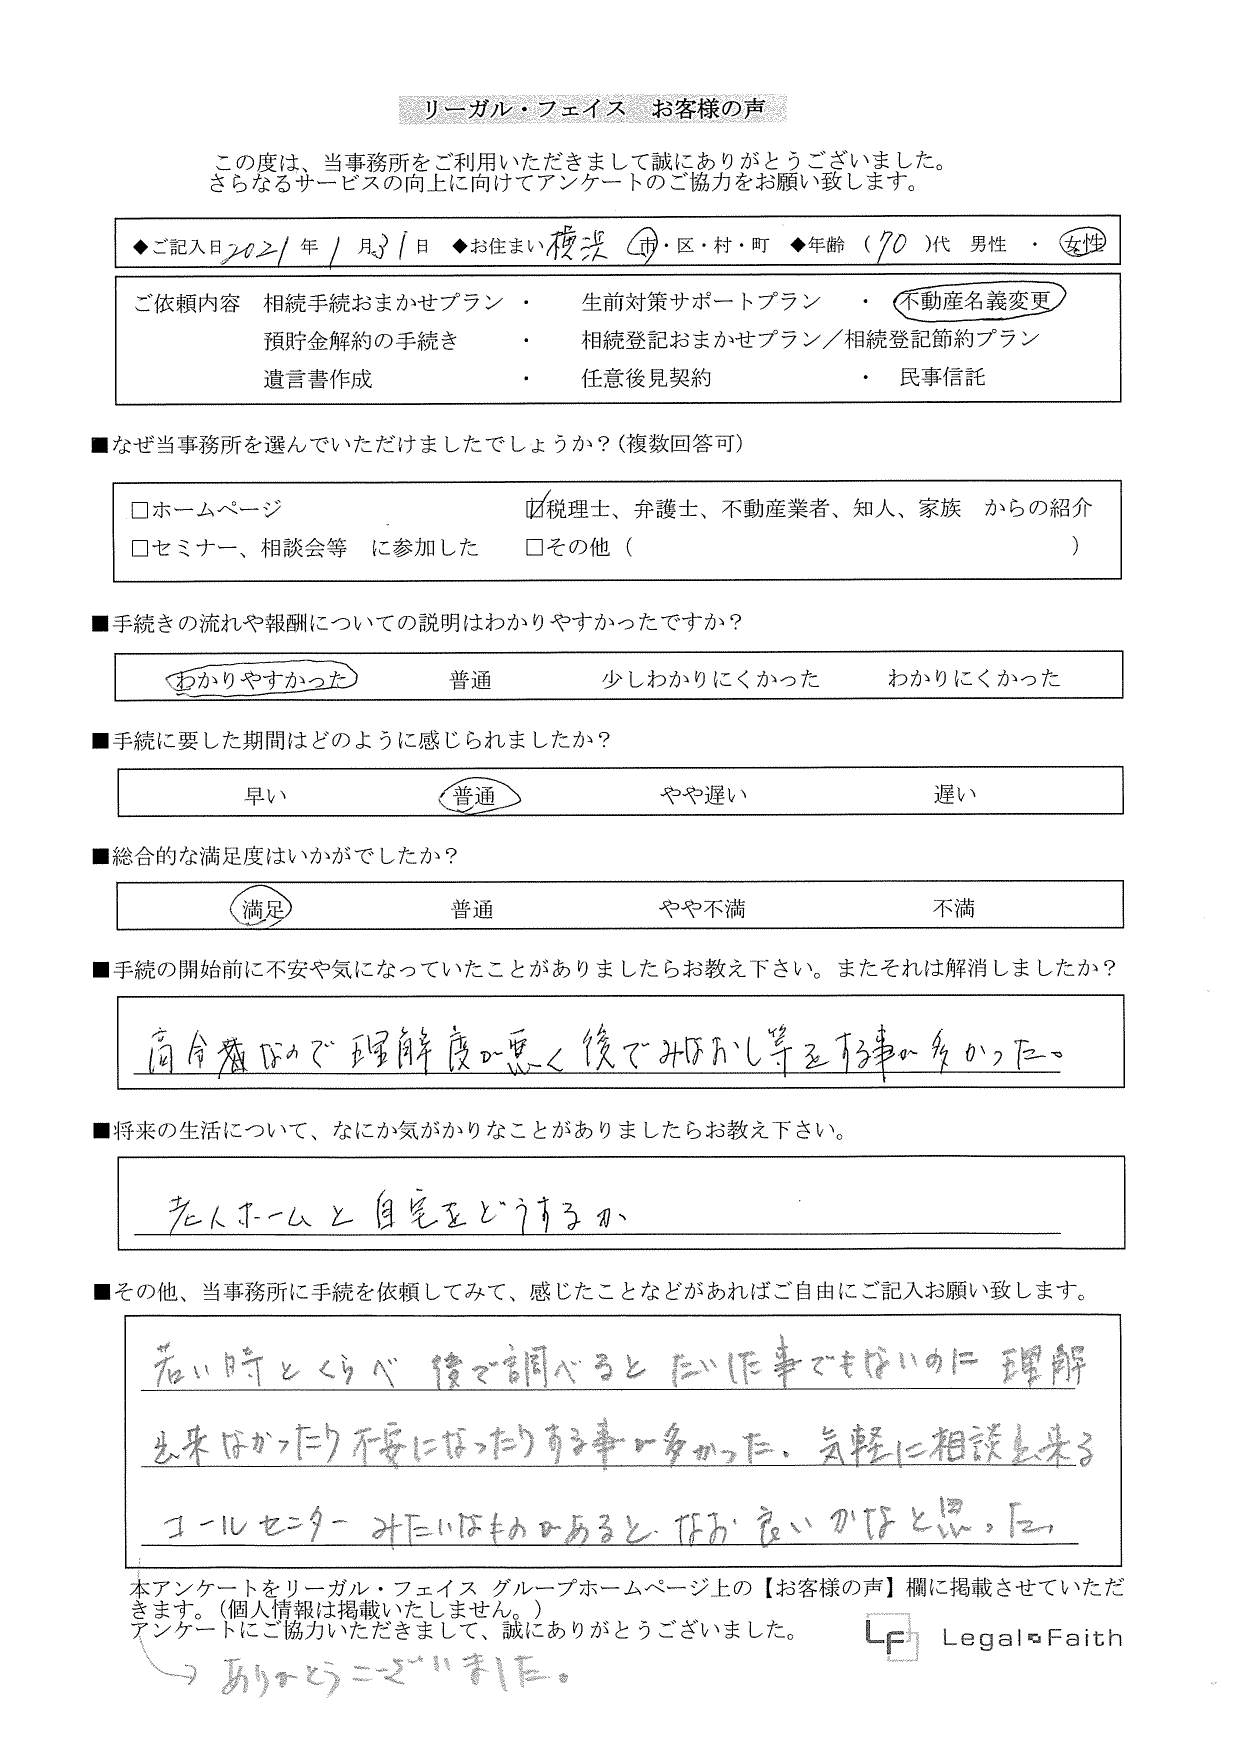 リーガル・フェイス　お客様の声
この度は、当事務所をご利用いただきまして誠にありがとうございました。
さらなるサービスの向上に向けてアンケートのご協力をお願い致します。
◆ご記入日 2021 年 1 月 31 日 ◆お住まい 横浜 市・区・村・町 ◆年齢 (70)代 男性 ・ 女性
ご依頼内容 相続手続おまかせプラン ・ 生前対策サポートプラン ・ 不動産名義変更
預貯金解約の手続き ・ 相続登記おまかせプラン／相続登記節約プラン
遺言書作成 ・ 任意後見契約 ・ 民事信託
■なぜ当事務所を選んでいただけましたでしょうか？(複数回答可)
□ホームページ ☑税理士、弁護士、不動産業者、知人、家族　からの紹介
□セミナー、相談会等　に参加した □その他（ ）
■手続きの流れや報酬についての説明はわかりやすかったですか？
わかりやすかった 普通 少しわかりにくかった わかりにくかった
■手続に要した期間はどのように感じられましたか？
早い 普通 やや遅い 遅い
■総合的な満足度はいかがでしたか？
満足 普通 やや不満 不満
■手続の開始前に不安や気になっていたことがありましたらお教え下さい。またそれは解消しましたか？
高令者なので 理解度が悪く 後でみなおし等をする事が多かった。
■将来の生活について、なにか気がかりなことがありましたらお教え下さい。
老人ホームと 自宅をどうするか
■その他、当事務所に手続を依頼してみて、感じたことなどがあればご自由にご記入お願い致します。
若い時とくらべ 後で調べると たいした事でもないのに 理解
出来なかったり不安になったりする事が多かった。気軽に相談出来る
コールセンターみたいなものがあると なお良いかなと思った。
本アンケートをリーガル・フェイス グループホームページ上の【お客様の声】欄に掲載させていただ
きます。（個人情報は掲載いたしません。）
アンケートにご協力いただきまして、誠にありがとうございました。
LF Legal Faith
→ ありがとうございました。